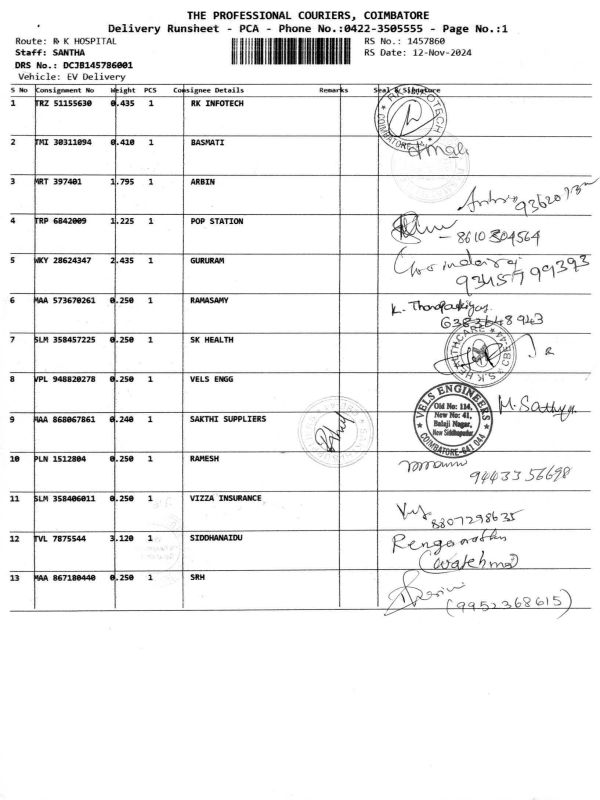 THE PROFESSIONAL COURIERS, COIMBATORE
Delivery Runsheet - PCA - Phone No.:0422-3505555 - Page No.:1
Route: R K HOSPITAL RS No.: 1457860
Staff: SANTHA RS Date: 12-Nov-2024
DRS No.: DCJB145786001
Vehicle: EV Delivery
S No Consignment No Weight PCS Consignee Details Remarks Seal & Signature
1 TRZ 51155630 0.435 1 RK INFOTECH RK INFOTECH COIMBATORE
2 TMI 30311094 0.410 1 BASMATI
3 MRT 397401 1.795 1 ARBIN
4 TRP 6842009 1.225 1 POP STATION
- 8610304564
5 WKY 28624347 2.435 1 GURURAM
9345799393
6 MAA 573670261 0.250 1 RAMASAMY
6383648943
7 SLM 358457225 0.250 1 SK HEALTH S.K HEALTHCARE CBE-44
8 VPL 948820278 0.250 1 VELS ENGG VELS ENGINEERS
Old No: 114,
New No: 41,
Balaji Nagar,
New Siddhapudur,
COIMBATORE-641 044
M. Sathya
9 MAA 868067861 0.240 1 SAKTHI SUPPLIERS
10 PLN 1512804 0.250 1 RAMESH
9443356698
11 SLM 358406011 0.250 1 VIZZA INSURANCE
8807298635
12 TVL 7875544 3.120 1 SIDDHANAIDU
13 MAA 867180440 0.250 1 SRH
(9952368615)